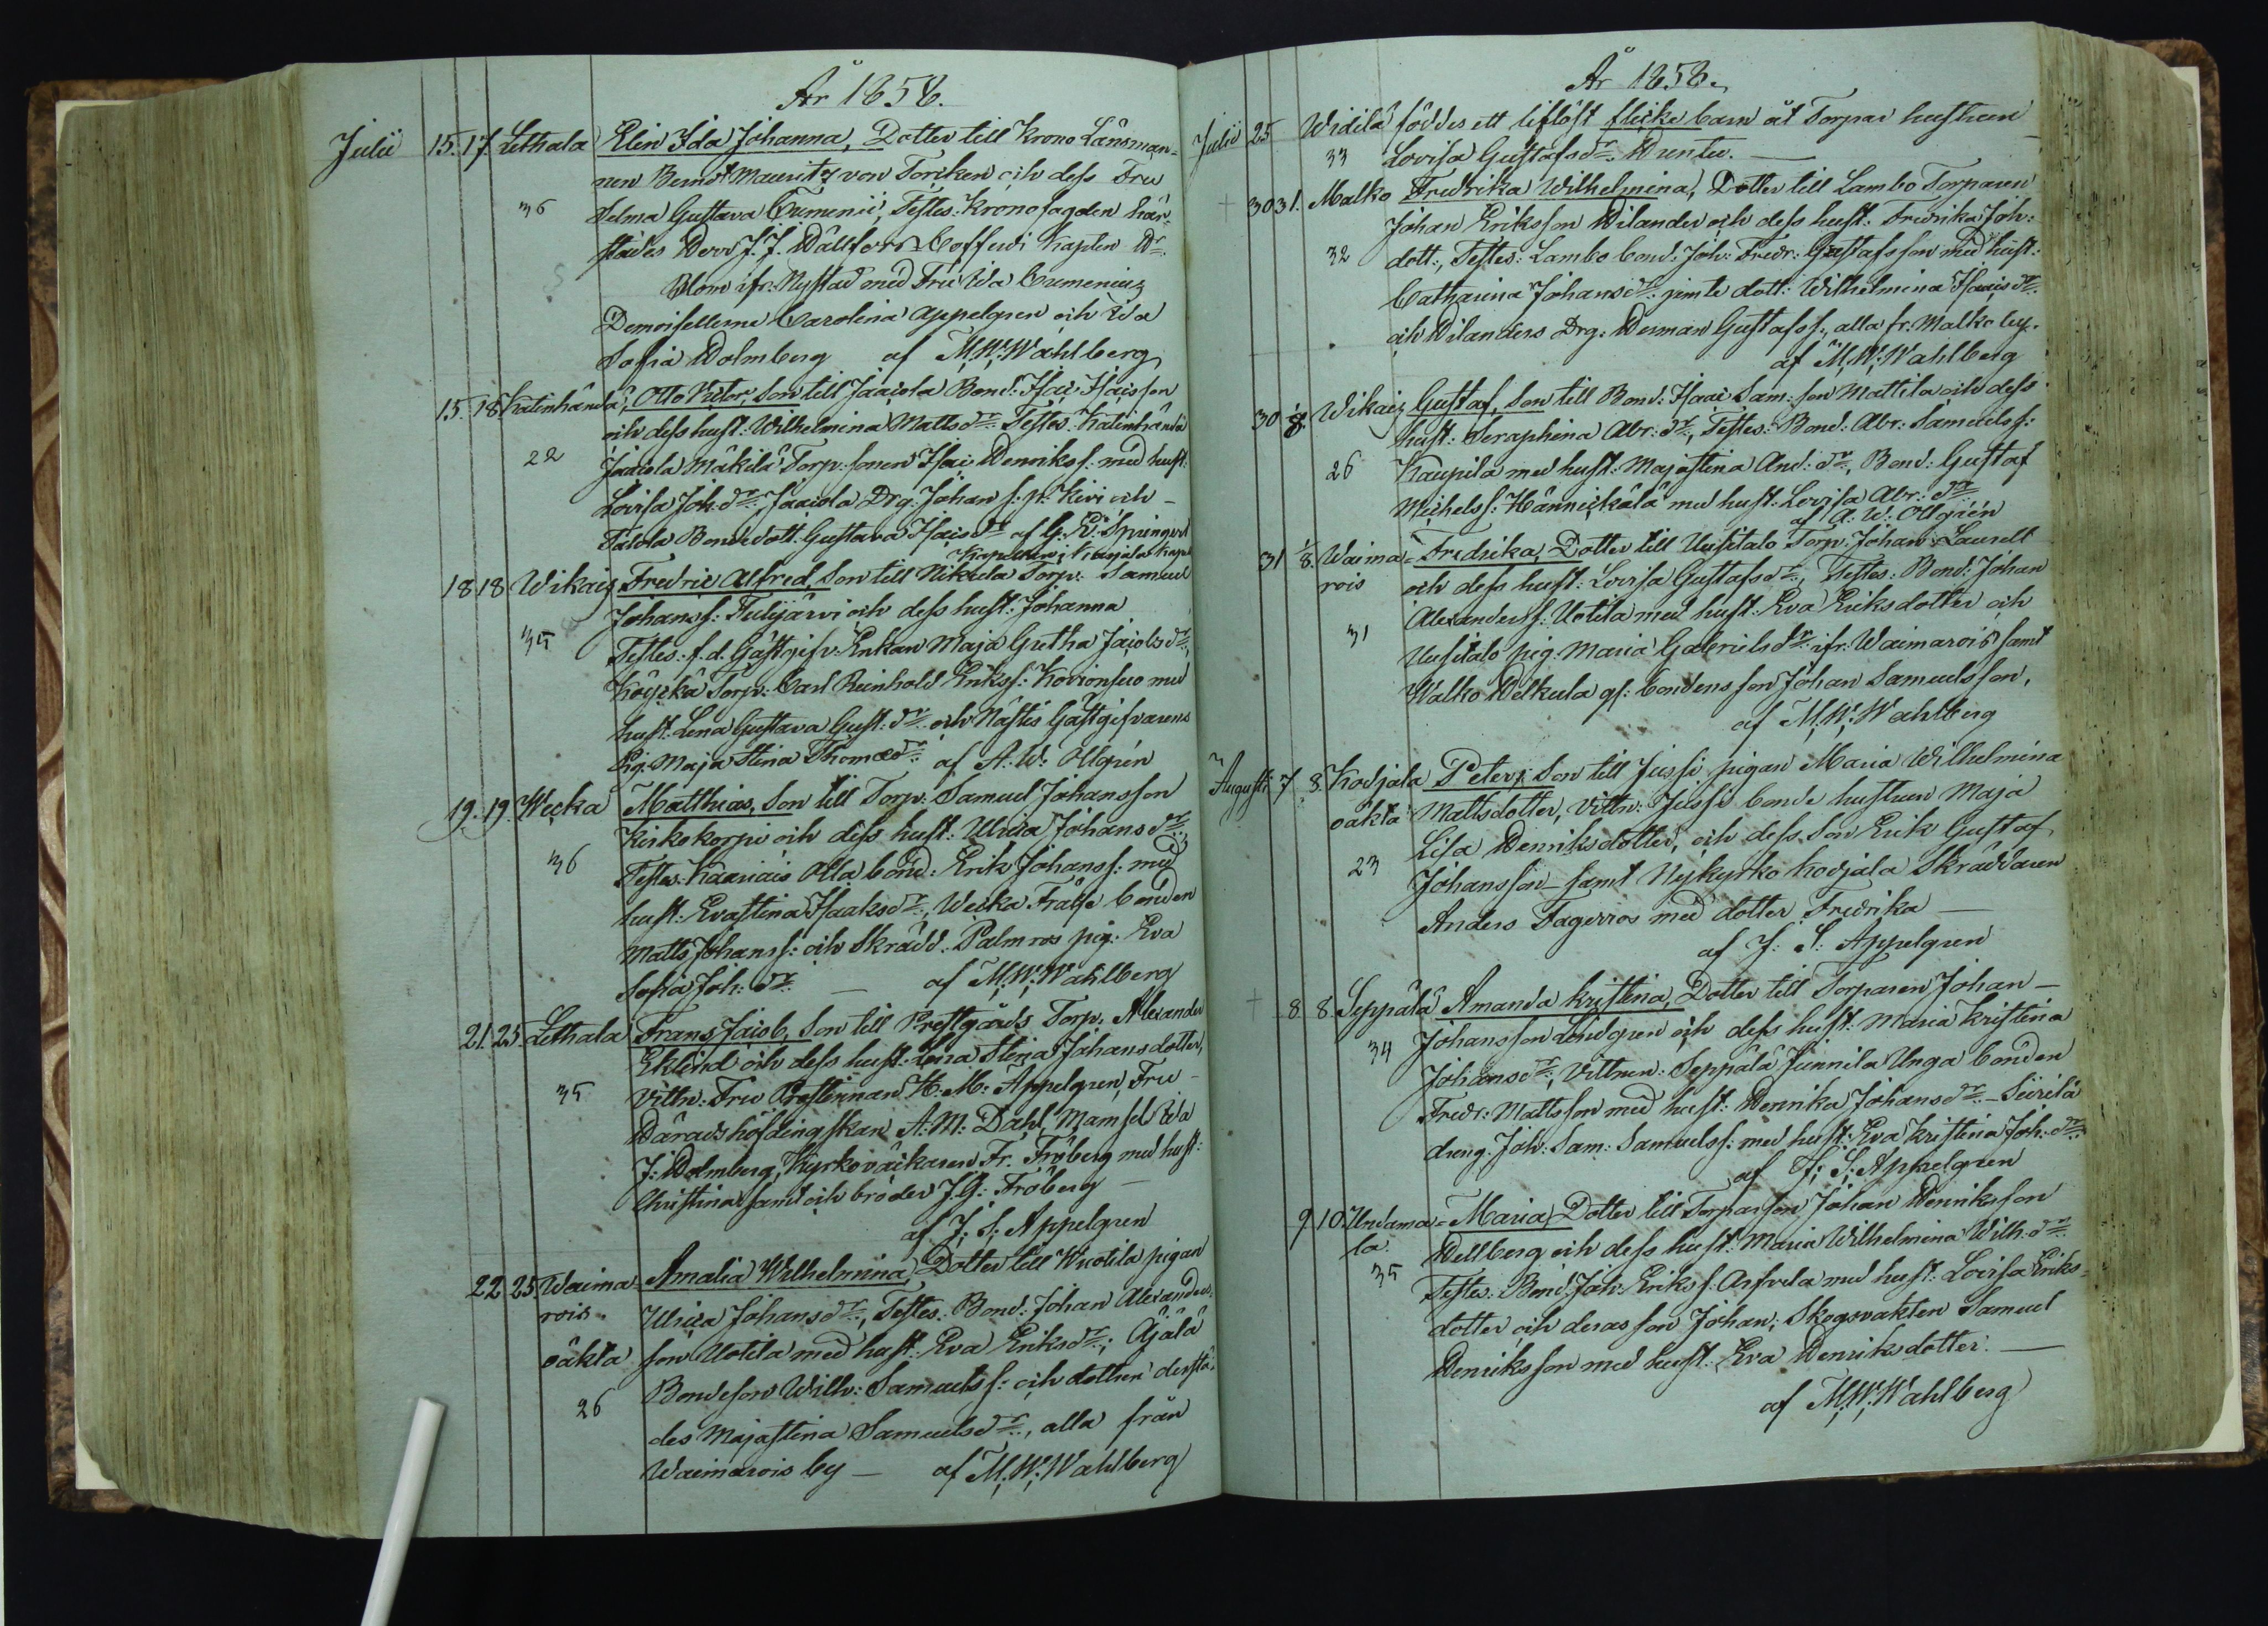 År 1858.
Julii 15. 17. Lethala Elin Ida Johanna, Dotter till Krono Länsman=
nen Berndt Mauritz von Torcken och dess Fru
36 Selma Gustava Cumenii, Testes: Kronofogden här=
städes Herr J. J. Hällfors, Coffendi Kapten H:r
Blom ifr: Nystad med Fru Ida Cumenius,
Demoisellerne Carolina Appelgren och Ida
Sofia Holmberg af M. W. Wahlberg
15. 18. Katinhändä, Otto Victor, Son till Jaacola Bond: Isac Isacsson
och dess hust: Wilhelmina Matts dr: Testes: Katinhändä
22 Jaacola Mäkilä Torp: sonen Isac Henriks s: med hust:
Lovisa Joh: dr:, Jaacola Drg: Johan s: p: Kivi och
Tälola Bondedott: Gustava Isacs dr: af G. E. Springert
Kapellan i Karjala Kapel
18 18 Wikais Fredric Alfred, Son till Nikula Torp: Samuel
Johanss: Tulijärvi och dess hust: Johanna
35 Testes: f. d. Gästgifv: Enkan Maja Gretha Jacobs dr:,
Köyckä Torp: Carl Reinhold Erikss: Korvonsuo med
hust: Lena Gustava Gust: dr: och Nästis Gästgifvarens
Pig: Maja Stina Thomæ dr: af A. W. Ollgrén
19. 19. Wecka Matthias, Son till Torp: Samuel Johansson
Kirkokorpi och dess hust: Ulrica Johans dr:
36 Testes: Kaariais Olla bond: Erik Johanss: med
hust: Evastina Isaaks dr:, Wecka Frälse bonden
Matts Johanss: och Skrädd: Palmros pig: Eva
Sofia Joh: dr: — af M. W. Wahlberg
21. 25. Lethala Frans Jacob, Son till Prestgårds Torp: Alexander
Eklind och dess hust: Lena Stina Johansdotter,
35 Vittn: Fru Prostinnan H. M: Appelgren, Fru
Häradshöfdingskan A. M: Dahl, Mamsel Ida
J: Holmberg, Kyrkoväckaren Fr. Fröberg med hust:
Christina samt och broder J. G: Fröberg —
af J. S. Appelgren
22 25. Waima= Amalia Wilhelmina, Dotter till Wuotila pigan
rois Ulrica Johans dr:, Testes: Bond: Johan Alexanders=
oäkta son Uotila med hust: Eva Eriks dr:; Äjälä
26 Bondeson Wilh: Samuels s: och dotter derstä=
des Majastina Samuels dr:, alla från
Waimarois by — af M. W. Wahlberg
År 1858.
Julii 25 Widilä föddes ett liflöst flicke barn åt Torpar hustrun
33 Lovisa Gustafs dr: Huntu. —
+ 30 31. Malko Fredrika Wilhelmina, Dotter till Lambo Torparen
Johan Eriksson Wilander och dess hust: Fredrika Joh:
32 dott:, Testes: Lambo bond: Joh: Fredr: Gustafsson med hust:
Catharina Johans dr: jemte dott: Wilhelmina Isacs dr:
och Wilanders Drg: Herman Gustafs s:, alla fr. Malko by.
af M. W. Wahlberg
30 1/8. Wikais Gustaf, Son till Bond: Isaac Sam: son Mattila och dess
hust: Seraphina Abr: dr:, Testes: Bond: Abr: Samuels s:
26 Kaupila med hust: Majastina And: dr:, Bond: Gustaf
Michels s: Hännickälä med hust: Lovisa Abr: dr:
af A. W. Ollgrén
31 1/8. Waima= Fredrika, Dotter till Uusitalo Torp: Johan Laurell
rois och dess hust: Lovisa Gustafs dr:, Testes: Bond: Johan
31 Alexanders s: Uotila med hust: Eva Eriksdotter och
Uusitalo pig: Maria Gabriels dr: ifr: Waimarois samt
Walko Welkula gl: bondens son Johan Samuelsson,
af M. W. Wahlberg
Augusti 7 8. Kodjala Peter, Son till Jussi pigan Maria Wilhelmina
oäkta Mattsdotter, Vittn: Jussi bonde hustrun Maja
23 Lisa Henriksdotter, och dess Son Erik Gustaf
Johansson samt Nykyrko Kodjala Skräddaren
Anders Fagerros med dotter Fredrika —
af J. S. Appelgren
+ 8 8. Seppälä Amanda Kristina, Dotter till Torparen Johan —
34 Johansson Lindgren och dess hust: Maria Kristina
Johans dr:, Vittnen: Seppälä Junnila Unga bonden
Fredr: Mattsson med hust: Henrika Johans dr: – Siirilä
dreng Joh: Sam: Samuels s: med hust: Eva Kristina Joh: dr:
af J. S. Appelgren
9 10. Undama= Maria, Dotter till Torparson Johan Henriksson
la Hellberg och dess hust: Maria Wilhelmina Wilh. dr:
35 Testes: Bond: Joh: Eriks s: Arfvela med hust: Lovisa Eriks=
dotter och deras son Johan; Skogsvakten Samuel
Henriksson med hust: Eva Henriksdotter. —
af M. W. Wahlberg